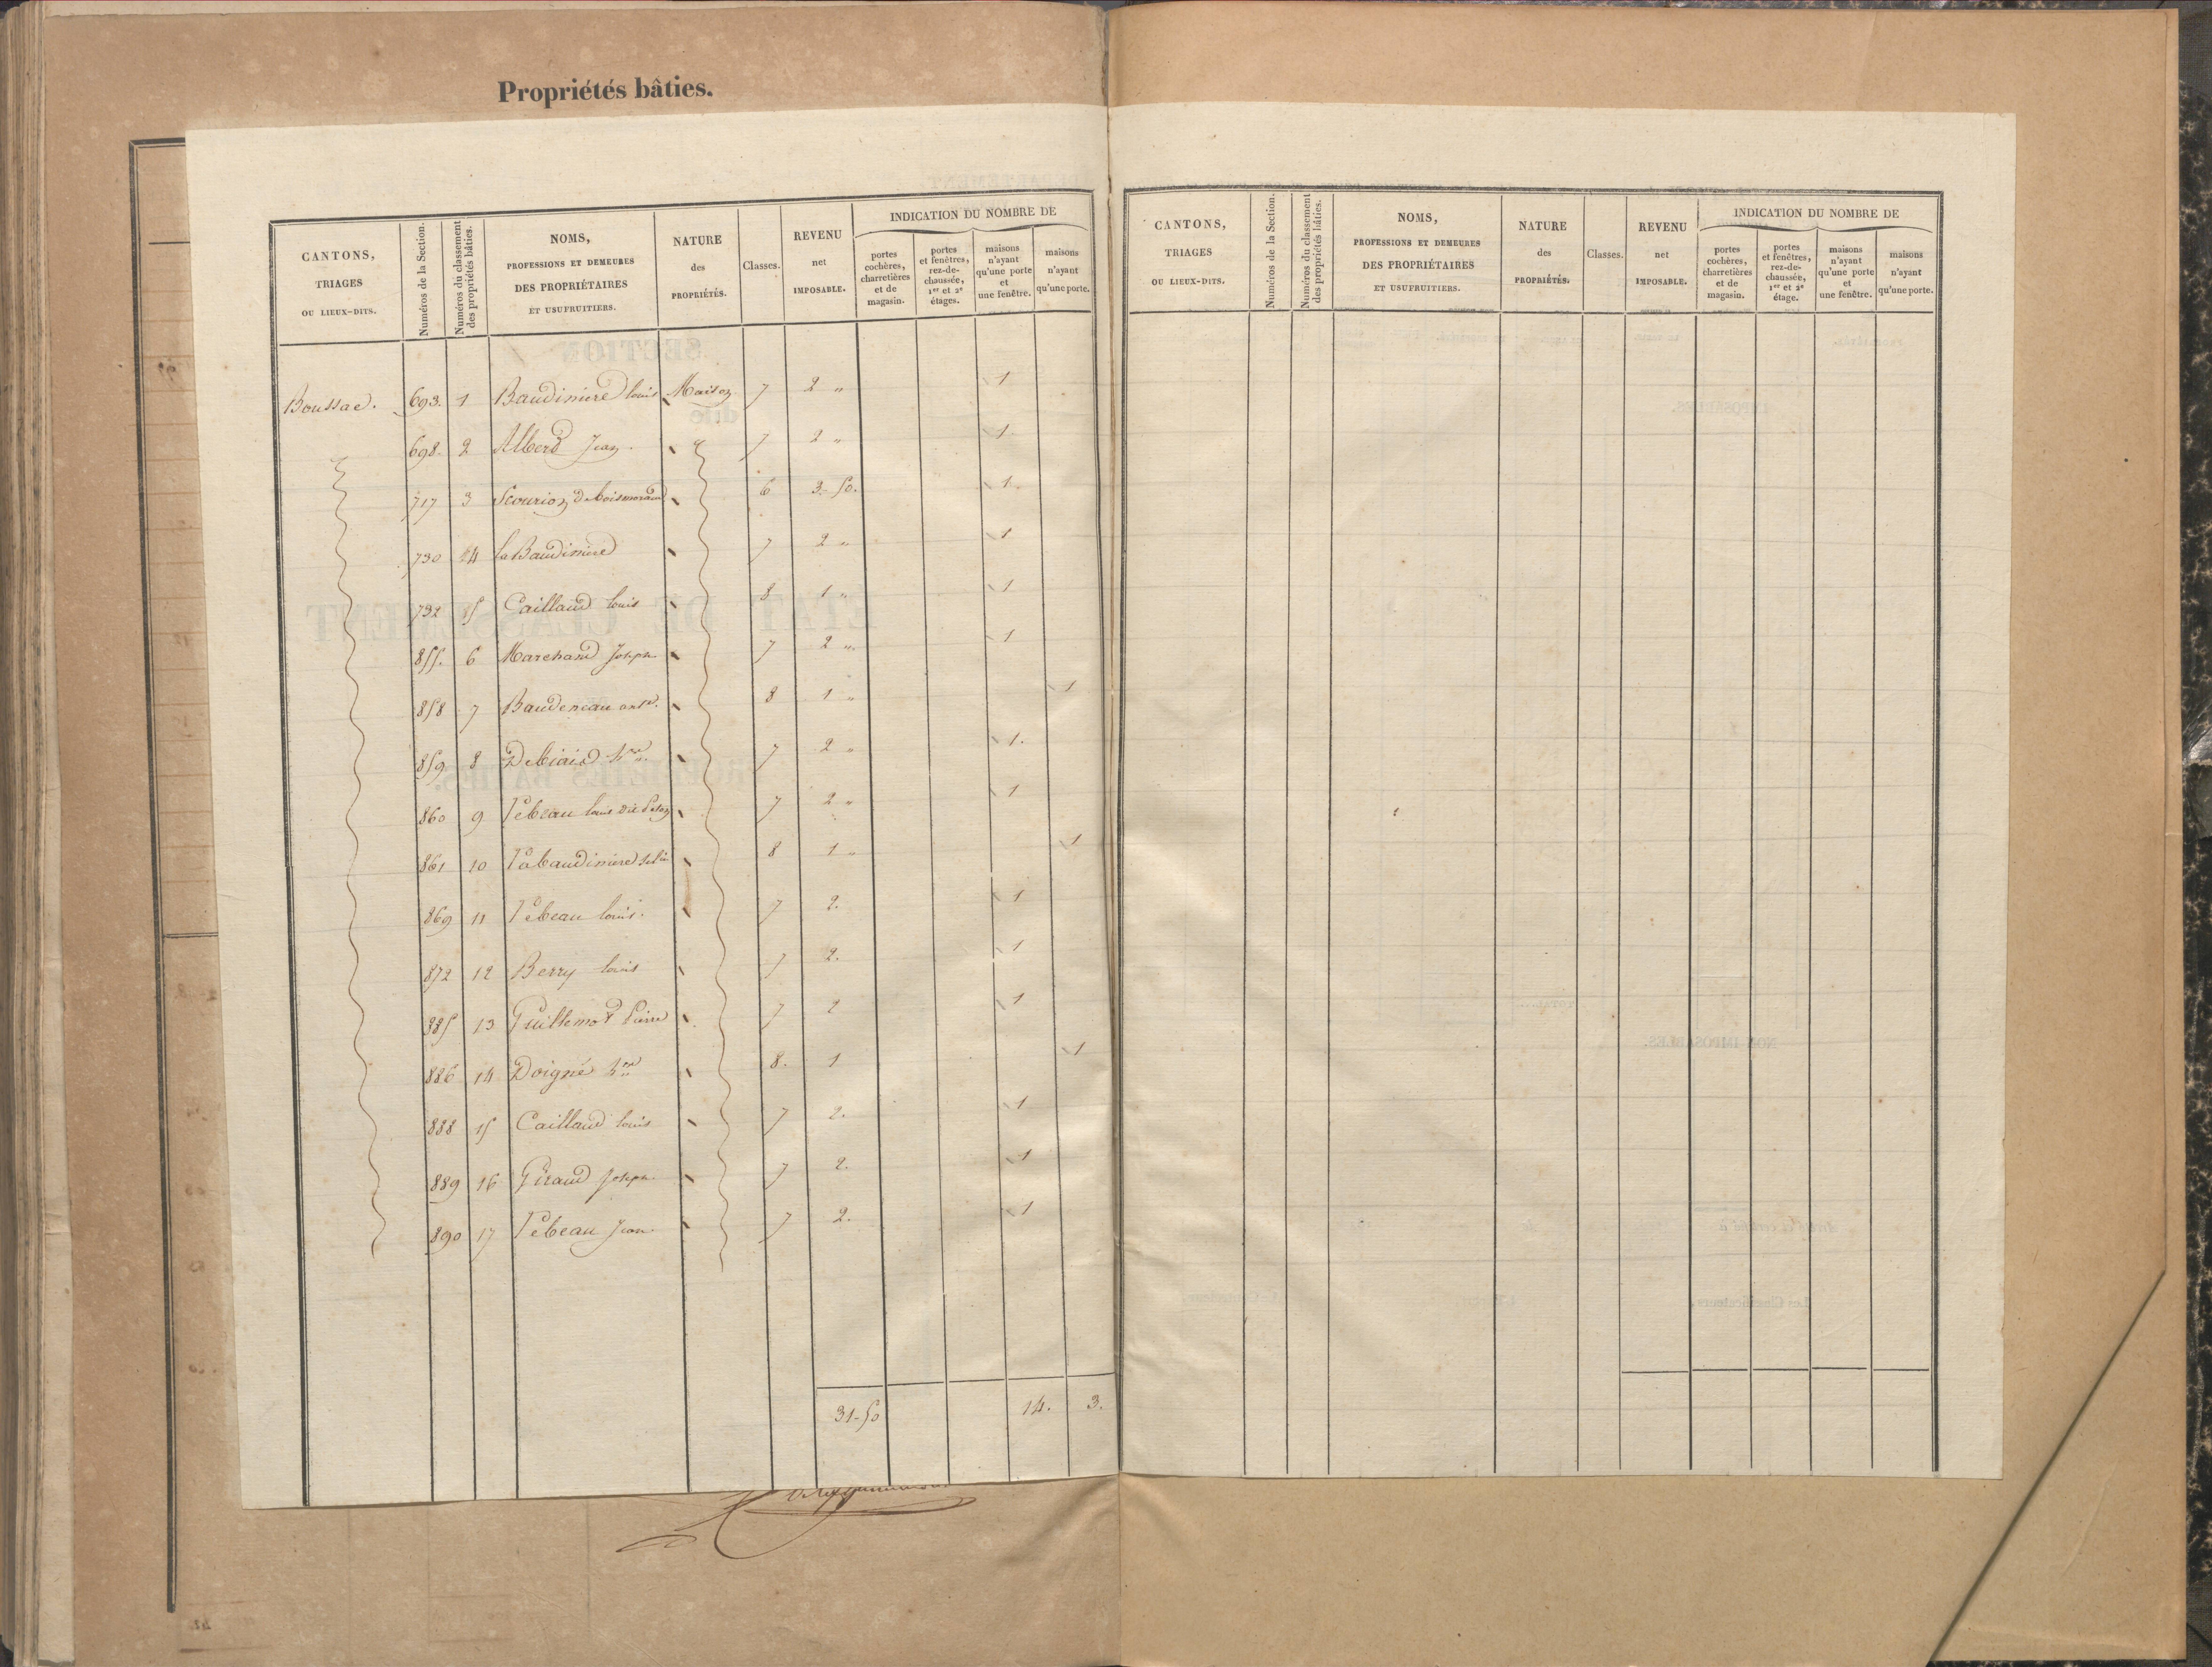 Propriétés bâties.
CANTONS, TRIAGES OU LIEUX-DITS.
Numéros de la Section.
Numéros du classement des propriétés bâties.
NOMS, PROFESSIONS ET DEMEURES DES PROPRIÉTAIRES ET USUFRUITIERS.
NATURE des PROPRIÉTÉS.
Classes.
REVENU net IMPOSABLE.
INDICATION DU NOMBRE DE
portes cochères, charretières et de magasin.
portes et fenêtres, rez-de-chaussée, 1er et 2e étages.
maisons n'ayant qu'une porte et une fenêtre.
maisons n'ayant qu'une porte.
Boussac. 693. 1 Baudinière louis Maison 7 2 " 1
698. 2 Albert Jean 7 2 " 1
717 3 Scourion de boismorand 6 3-50. 1
730 4 la Baudinière 7 2 " 1
732 5 Caillaud louis 8 1 " 1
855. 6 Marchand Joseph 7 2 " 1
858 7 Baudeneau 8 1 " 1
859 8 7 2 " 1.
860 9 Tebeau louis dit 7 2 " 1
861 10 Labaudinière 8 1 " 1
869 11 Tebeau louis. 7 2. 1
872 12 Berry louis 7 2. 1
885 13 Guillemot Pierre 7 2 1
886 14 Doigné 8. 1 1
888 15 Caillaud louis 7 2. 1
889 16 Giraud Joseph 7 2. 1
890 17 Tebeau Jean 7 2. 1
31-50 14. 3.
CANTONS, TRIAGES OU LIEUX-DITS.
Numéros de la Section.
Numéros du classement des propriétés bâties.
NOMS, PROFESSIONS ET DEMEURES DES PROPRIÉTAIRES ET USUFRUITIERS.
NATURE des PROPRIÉTÉS.
Classes.
REVENU net IMPOSABLE.
INDICATION DU NOMBRE DE
portes cochères, charretières et de magasin.
portes et fenêtres, rez-de-chaussée, 1er et 2e étage.
maisons n'ayant qu'une porte et une fenêtre.
maisons n'ayant qu'une porte.